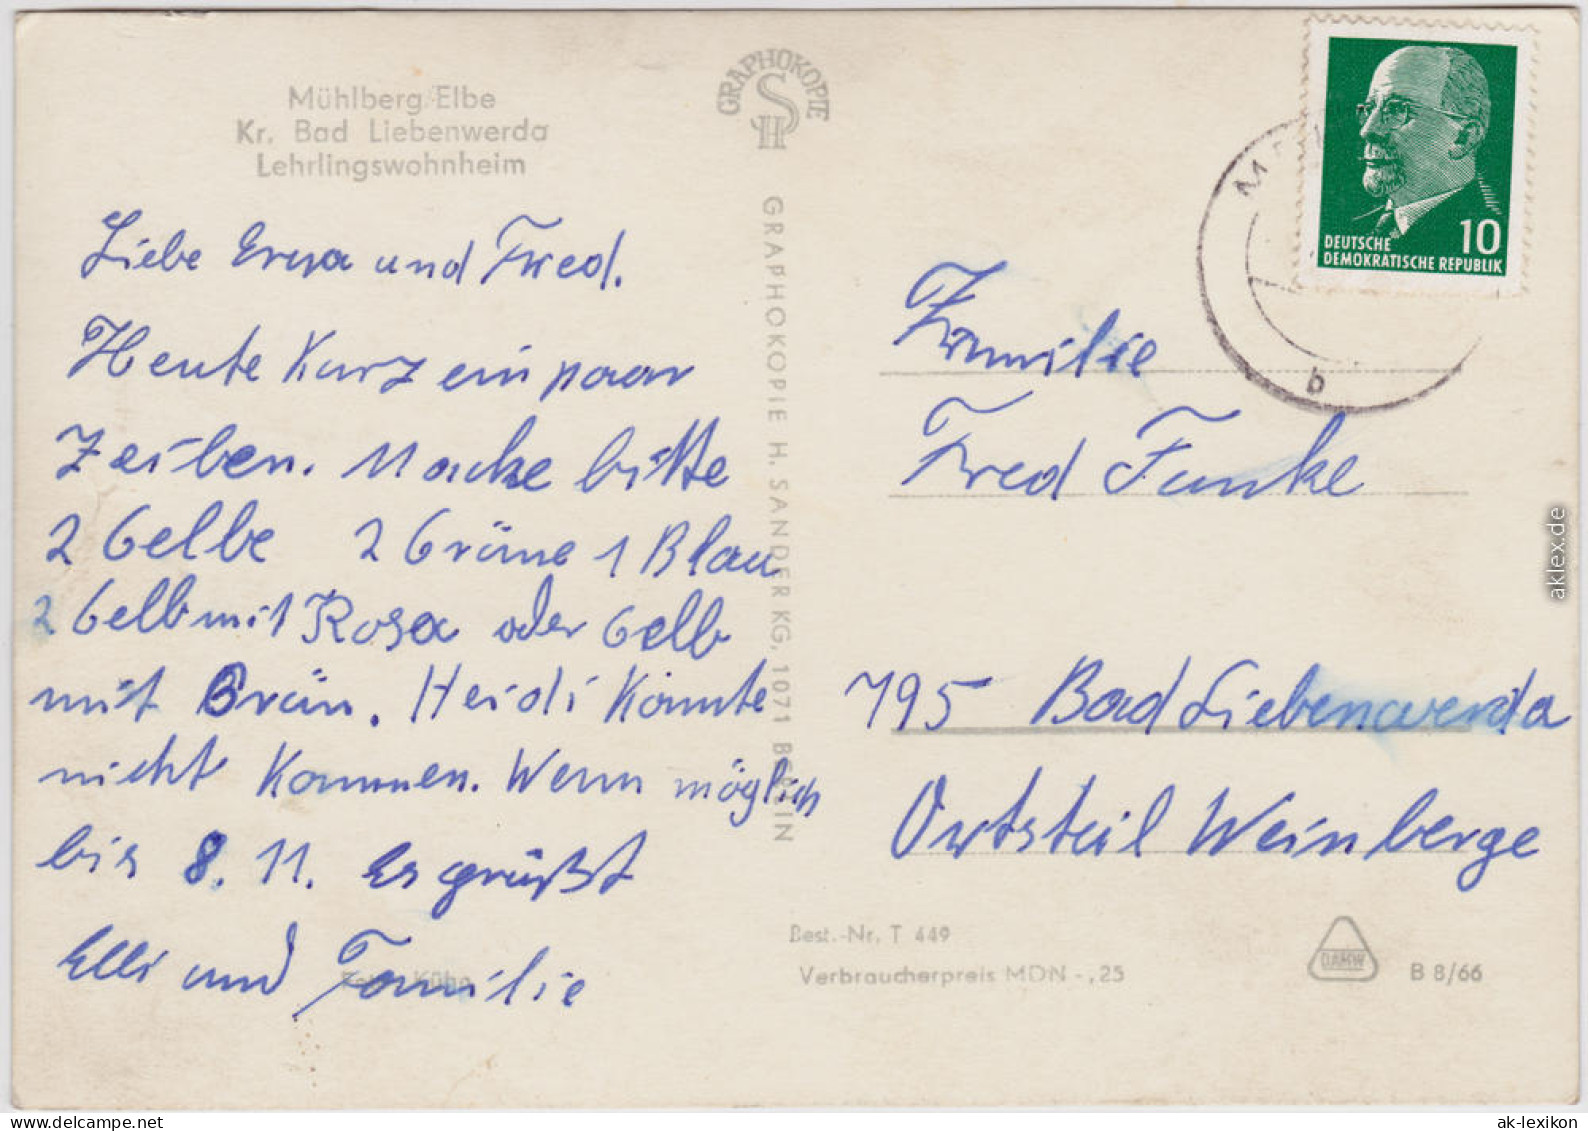 Mühlberg/Elbe
Kr. Bad Liebenwerda
Lehrlingswohnheim
Liebe Erna und Fred.
Heute Kurz ein paar
Zeilben. Mache bitte
2 Gelbe 2 Gräne 1 Blau
2 Gelb mit Rosa oder Gelb
mit Grün. Heidi Konnte
nicht Kommen. Wenn möglich
bis 8. 11. Es grüßt
Elli und Familie
GRAPHOKOPIE
HS
GRAPHOKOPIE H. SANDER KG, 1071 BERLIN
10
DEUTSCHE
DEMOKRATISCHE REPUBLIK
b
Familie
Fred Funke
795 Bad Liebenwerda
Ortsteil Weinberge
Best.-Nr. T 449
Verbraucherpreis MDN -,25
DAMW
B 8/66
aklex.de
www.delcampe.net
ak-lexikon